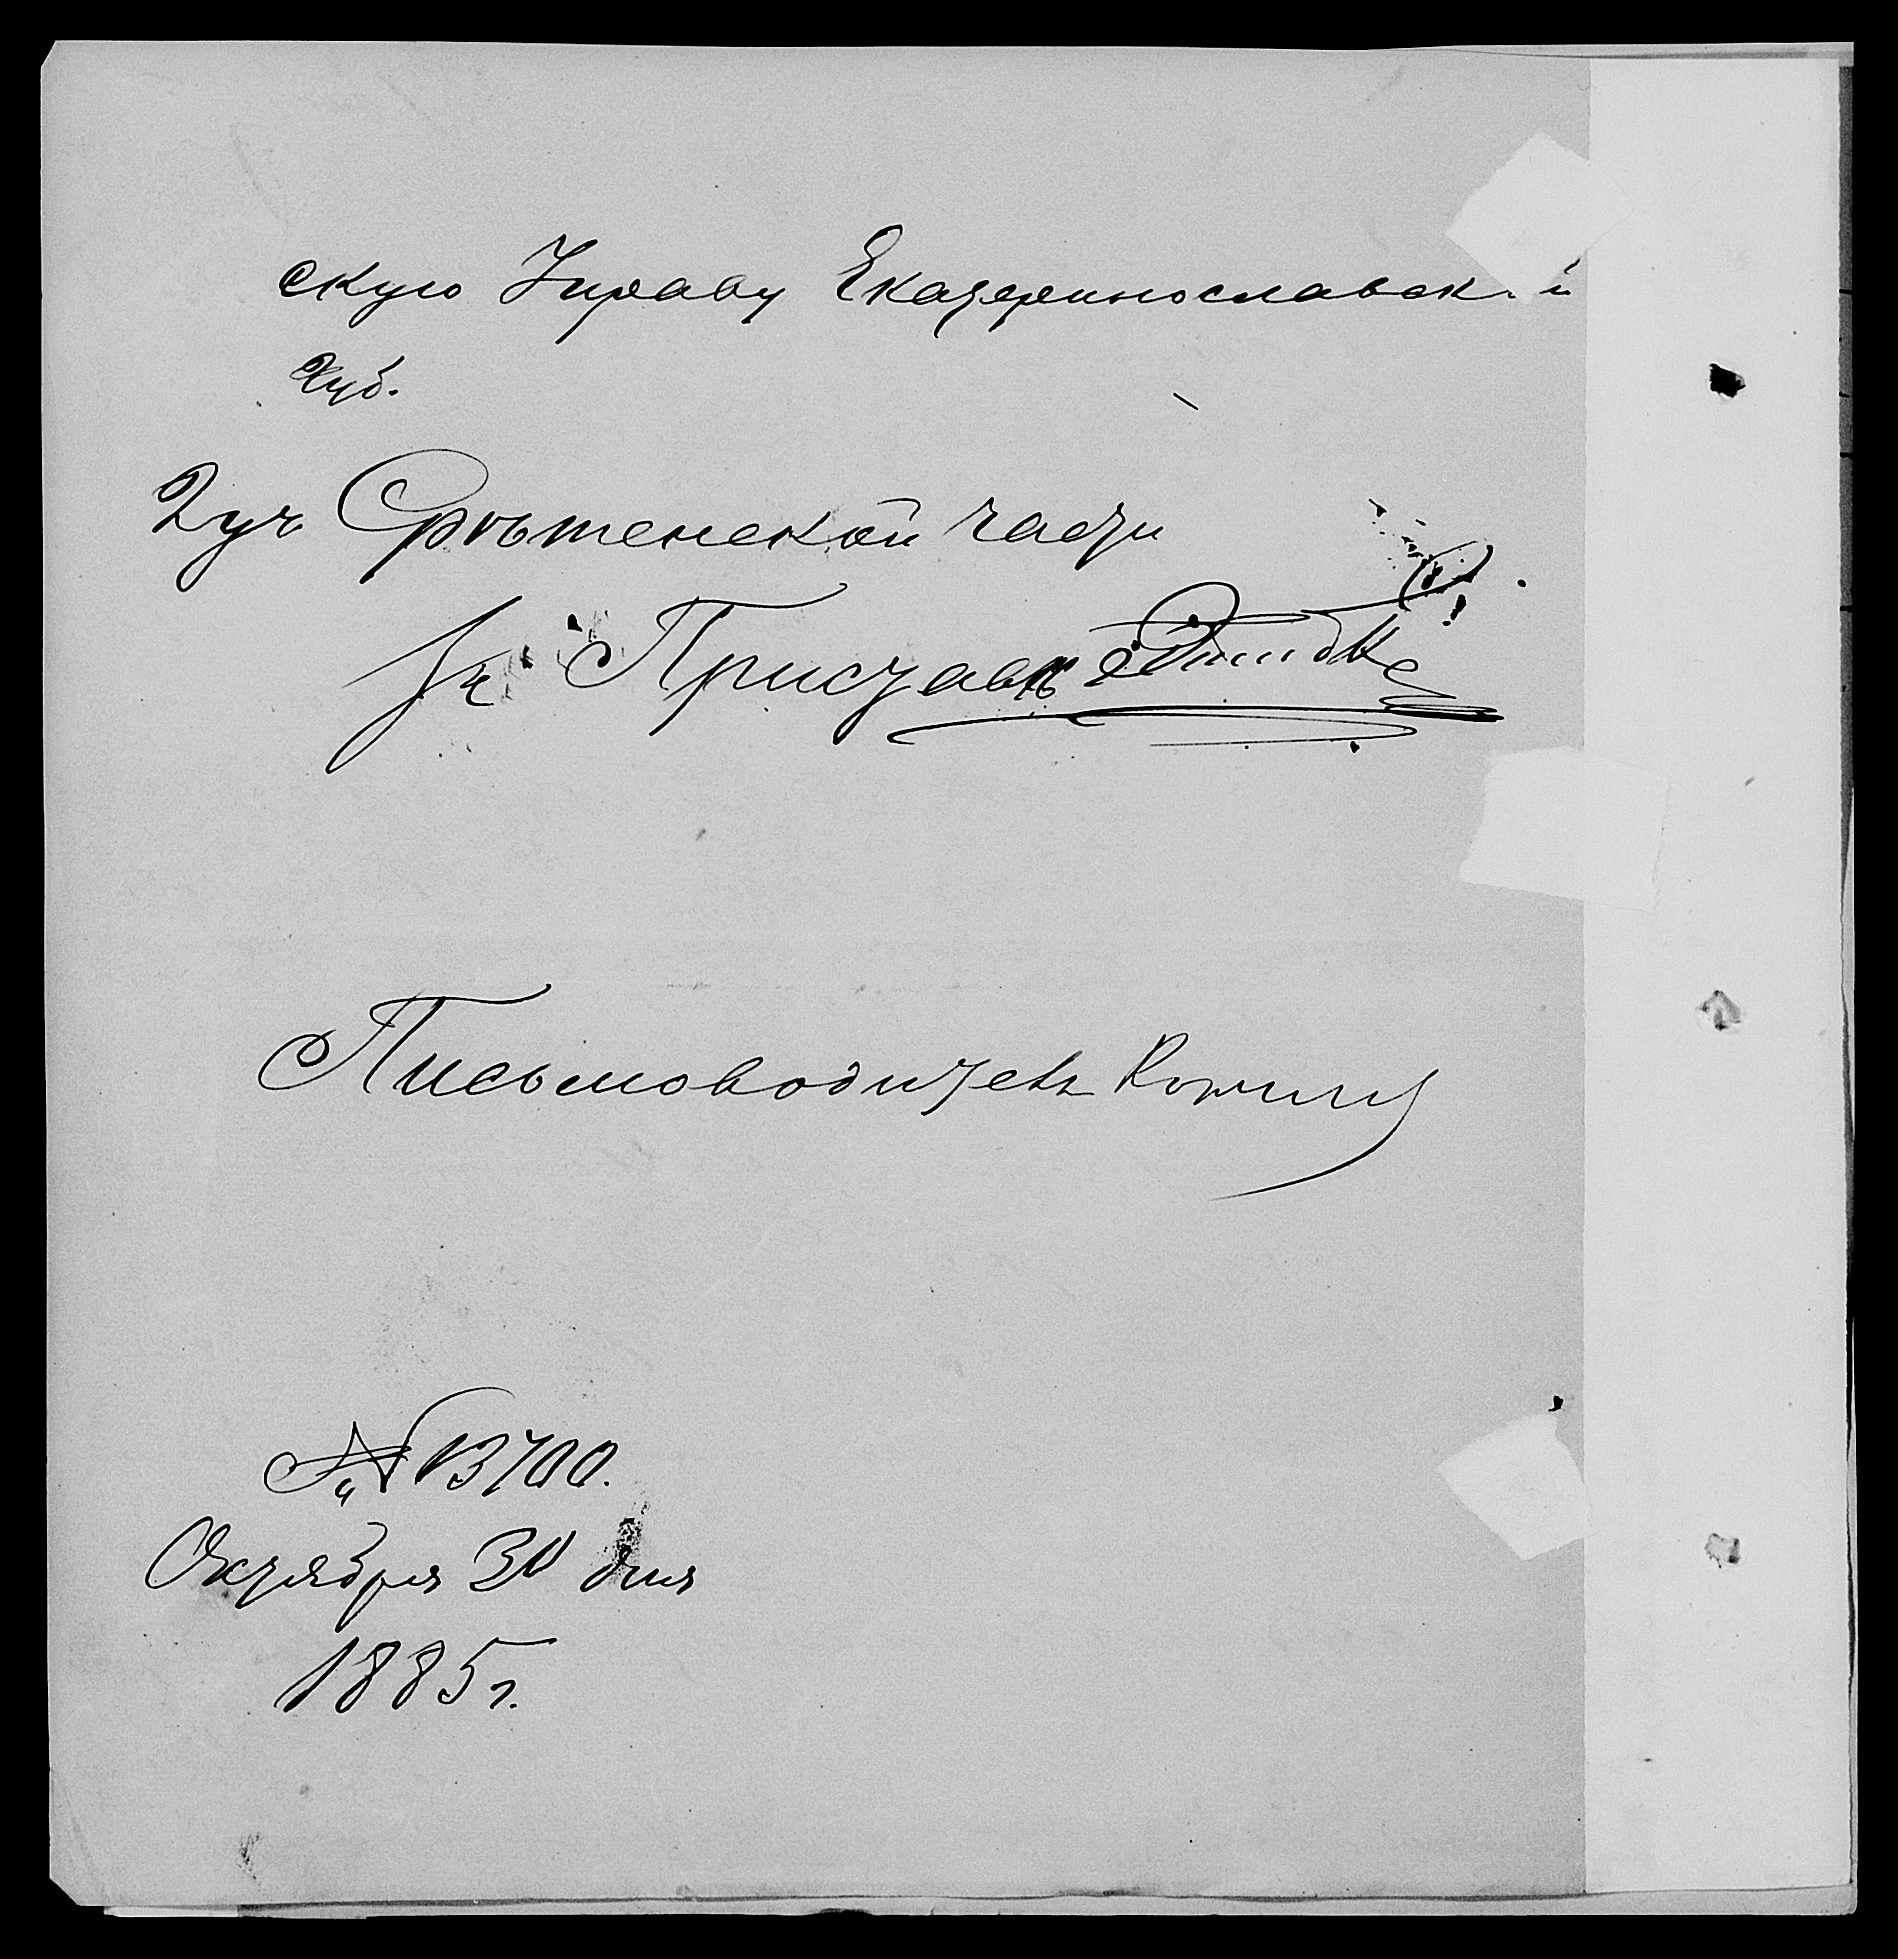 скую Управу Екатеринославск й
Губ.
2 уч Срѣтенской части
Приставъ
Письмоводитель
№ 13700.
Октября 30 дня
1885 г.